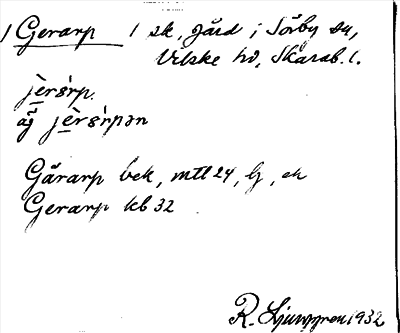 1 Gerarp 1 sk, gård i Sörby sn,
Vilske hd, Skarab. l.
jè̱rsr̀p.
af jè̱rsr̀pən
Gärarp bek, mtl 24, lj, ek
Gerarp kb 32
R. Ljunggren 1932